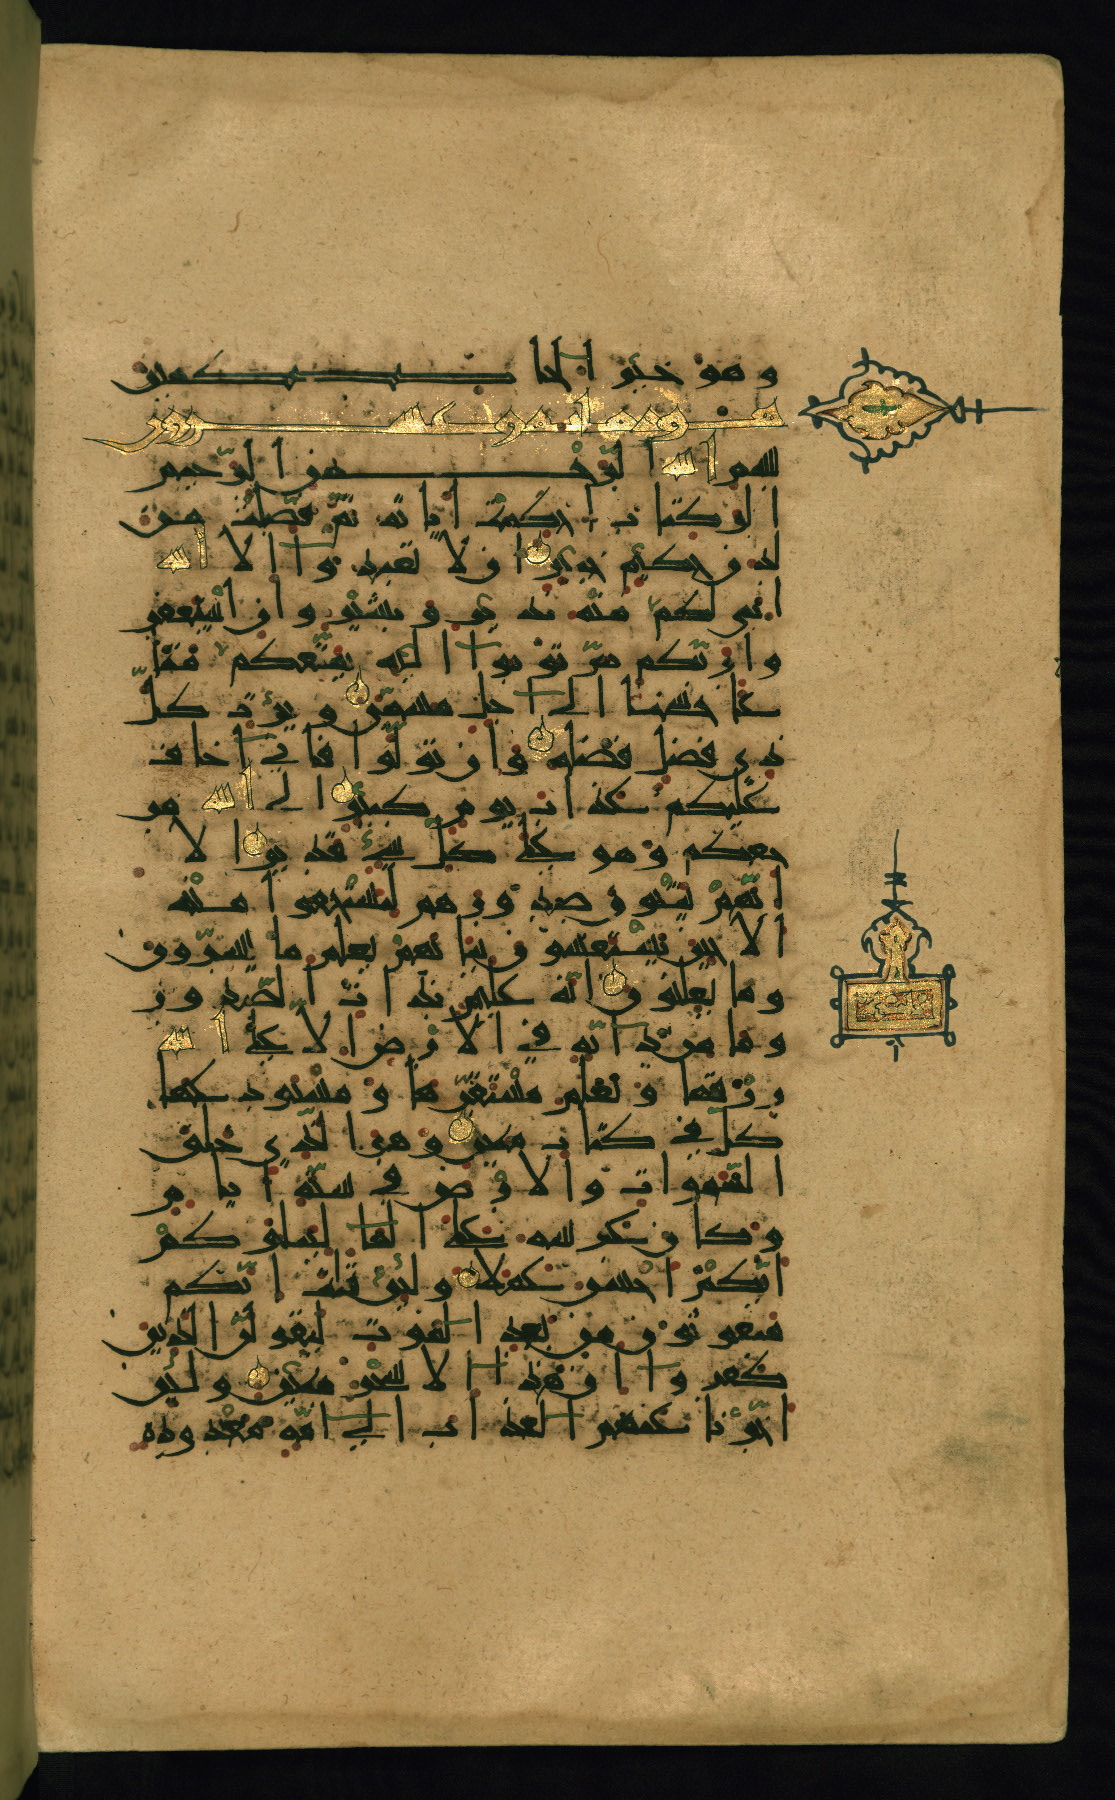 و هو خير الحاكمين
بسم الله الرحمن الرحيم
الر كتاب احكمت اياته ثم فصلت من
لدن حكيم خبير الا تعبدوا الا الله
انني لكم منه نذير و بشير و ان استغفر
وا ربكم ثم توبوا اليه يمتعكم متا
عا حسنا الى اجل مسمى و يؤت كل
ذي فضل فضله و ان تولوا فاني اخاف
عليكم عذاب يوم كبير الى الله مر
جعكم و هو على كل شيء قدير الا
انهم يثنون صدورهم ليستخفوا منه
الا حين يستغشون ثيابهم يعلم ما يسرون
و ما يعلنون انه عليم بذات الصدور
و ما من دابة في الارض الا على الله
رزقها و يعلم مستقرها و مستودعها
كل في كتاب مبين و هو الذي خلق
السموات و الارض في ستة ايام
و كان عرشه على الما ليبلوكم
ايكم احسن عملا و لئن قلت انكم
مبعوثون من بعد الموت ليقولن الذين
كفروا ان هذا الا سحر مبين و لئن
اخرنا عنهم العذاب الى امة معدودة